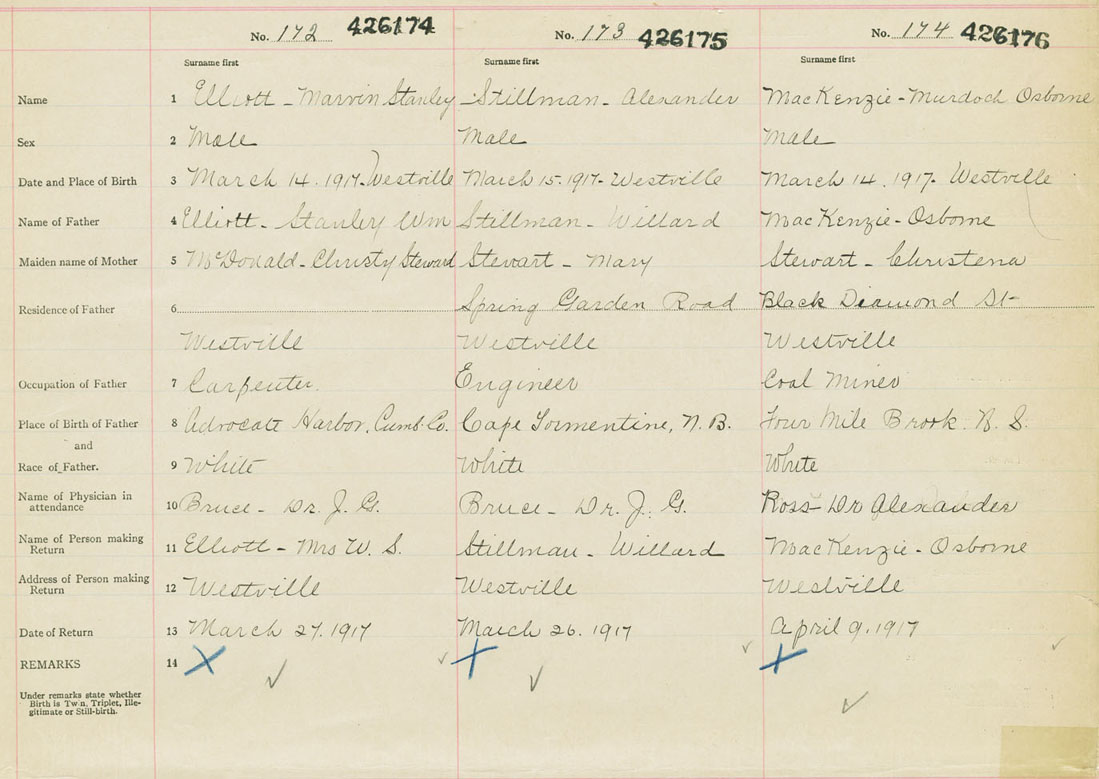 No. 172 426174 No. 173 426175 No. 174 426176
Surname first Surname first Surname first
Name 1 Elliott - Marvin Stanley Stillman - Alexander MacKenzie - Murdoch Osborne
Sex 2 Male Male Male
Date and Place of Birth 3 March 14. 1917. Westville March 15. 1917 - Westville March 14. 1917. Westville
Name of Father 4 Elliott - Stanley Wm Stillman - Willard MacKenzie - Osborne
Maiden name of Mother 5 McDonald - Christy Steward Stewart - Mary Stewart - Christena
Residence of Father 6 Spring Garden Road Black Diamond St
Westville Westville Westville
Occupation of Father 7 Carpenter. Engineer Coal Miner
Place of Birth of Father 8 Advocate Harbor, Cumb. Co. Cape Tormentine, N. B. Four Mile Brook. N. S.
and
Race of Father. 9 White White White
Name of Physician in
attendance 10 Bruce - Dr. J. G. Bruce - Dr. J. G. Ross - Dr Alexander
Name of Person making
Return 11 Elliott - Mrs W. S. Stillman - Willard MacKenzie - Osborne
Address of Person making
Return 12 Westville Westville Westville
Date of Return 13 March 27. 1917 March 26. 1917 April 9. 1917
REMARKS 14
Under remarks state whether
Birth is Twin, Triplet, Ille-
gitimate or Still-birth.